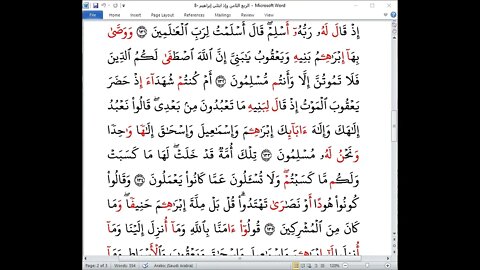 الربع الثامن وإذ ابتلى إبراهيم -8 - Microsoft Word
Home Insert Page Layout References Mailings Review View
إِذۡ قَالَ لَهُۥ رَبُّهُۥٓ أَسۡلِمۡۖ قَالَ أَسۡلَمۡتُ لِرَبِّ ٱلۡعَٰلَمِينَ ١٣١ وَوَصَّىٰ
بِهَآ إِبۡرَٰهِـۧمُ بَنِيهِ وَيَعۡقُوبُ يَٰبَنِيَّ إِنَّ ٱللَّهَ ٱصۡطَفَىٰ لَكُمُ ٱلدِّينَ
فَلَا تَمُوتُنَّ إِلَّا وَأَنتُم مُّسۡلِمُونَ ١٣٢ أَمۡ كُنتُمۡ شُهَدَآءَ إِذۡ حَضَرَ
يَعۡقُوبَ ٱلۡمَوۡتُ إِذۡ قَالَ لِبَنِيهِ مَا تَعۡبُدُونَ مِنۢ بَعۡدِيۖ قَالُواْ نَعۡبُدُ
إِلَٰهَكَ وَإِلَٰهَ ءَابَآئِكَ إِبۡرَٰهِـۧمَ وَإِسۡمَٰعِيلَ وَإِسۡحَٰقَ إِلَٰهٗا وَٰحِدٗا
وَنَحۡنُ لَهُۥ مُسۡلِمُونَ ١٣٣ تِلۡكَ أُمَّةٞ قَدۡ خَلَتۡۖ لَهَا مَا كَسَبَتۡ
وَلَكُم مَّا كَسَبۡتُمۡۖ وَلَا تُسۡـَٔلُونَ عَمَّا كَانُواْ يَعۡمَلُونَ ١٣٤ وَقَالُواْ
كُونُواْ هُودًا أَوۡ نَصَٰرَىٰ تَهۡتَدُواْۗ قُلۡ بَلۡ مِلَّةَ إِبۡرَٰهِـۧمَ حَنِيفٗاۖ وَمَا
كَانَ مِنَ ٱلۡمُشۡرِكِينَ ١٣٥ قُولُوٓاْ ءَامَنَّا بِٱللَّهِ وَمَآ أُنزِلَ إِلَيۡنَا وَمَآ
أُنزِلَ إِلَىٰٓ إِبۡرَٰهِـۧمَ وَإِسۡمَٰعِيلَ وَإِسۡحَٰقَ وَيَعۡقُوبَ وَٱلۡأَسۡبَاطِ وَمَآ
Page: 2 of 3 Words: 334 Arabic (Saudi Arabia) 120%